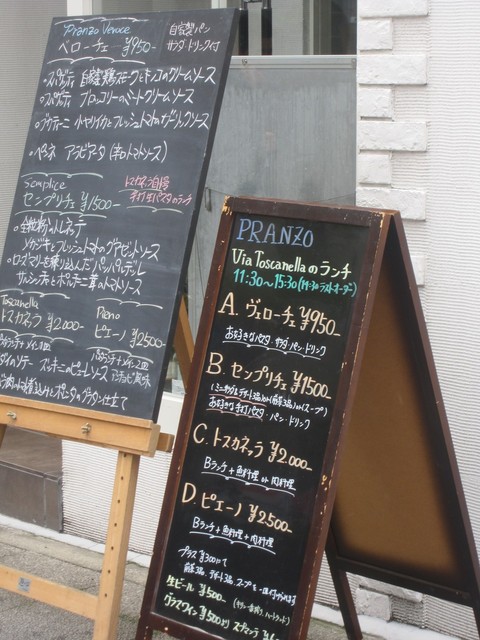 Pranzo Veroce
ベローチェ ¥950-
自家製パン
サラダ・ドリンク付
・スパゲティ 自家製鶏スモークとキノコのクリームソース
・スパゲティ ブロッコリーのミートクリームソース
小ヤリイカとフレッシュトマトのガーリックソース
・ペンネ アラビアータ (辛口トマトソース)
Semplice
センプリチェ ¥1500-
トスカネラ自慢
手打生パスタのランチ
・全粒粉のトルネテ
メカジキとフレッシュトマトのグアゼットソース
・ローズマリーを練り込んだパッパルデッレ
サルシッチャとポルチーニ茸のトマトソース
Toscanella
トスカネラ ¥2000-
Pieno
ピエーノ ¥2500-
パスタランチ+メイン2皿
ズッキーニのピューレソース アンチョビ風味
PRANZO
Via Toscanellaのランチ
11:30〜15:30(14:30ラストオーダー)
A. ヴェローチェ ¥950-
お好きなパスタ・サラダ・パン・ドリンク
B. センプリチェ ¥1500-
お好きな手打パスタ・パン・ドリンク
C. トスカネッラ ¥2.000-
Bランチ + 魚料理 or 肉料理
D. ピエーノ ¥2500-
Bランチ + 魚料理 + 肉料理
プラス ¥300にて
生ビール ¥500-
グラスワイン ¥500より